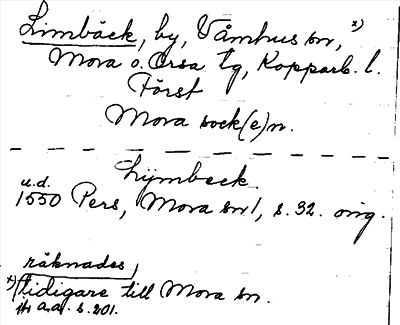 Limbäck, by, Våmhus sn, x)
Mora o. Orsa tg, Kopparb. l.
Först
Mora sock(e)n.
Lÿmbeck
u.d.
1550 Pers, Mora sn 1, s. 32. orig.
räknades,
x) tidigare till Mora sn.
a.a. s. 201.